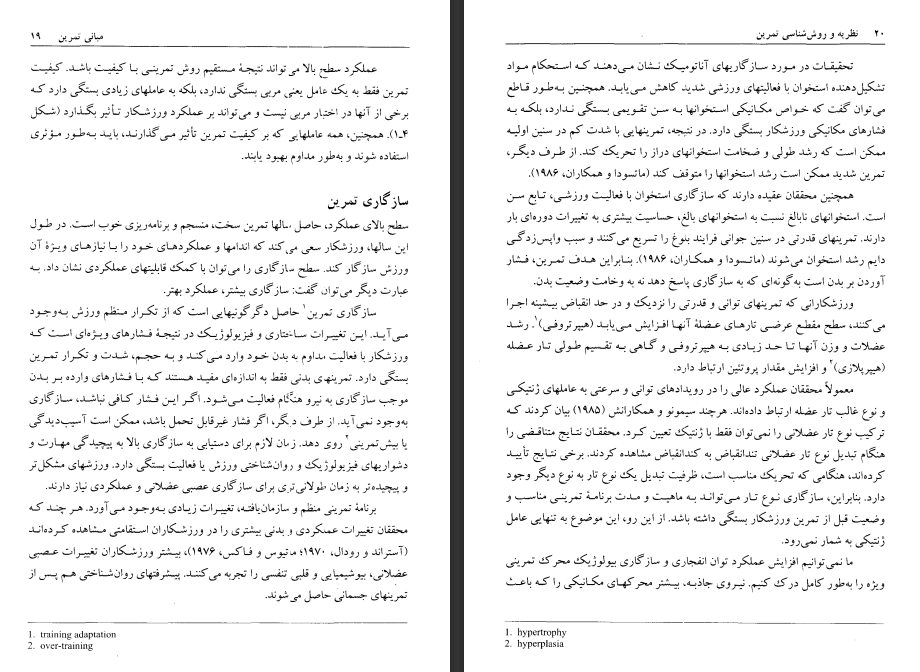 مبانی تمرین ۱۹
عملکرد سطح بالا می تواند نتیجهٔ مستقیم روش تمرینـی بـا کـیفیت بـاشد. کـیفیت
تمرین فقط به یک عامل یعنی مربی بستگی ندارد، بلکه به عاملهای زیادی بستگی دارد کـه
برخی از آنها در اختیار مربی نیست و می‌تواند بر عملکرد ورزشکار تـأثیر بگـذارد (شـکل
۴ـ۱). همچنین، همه عاملهایی که بر کیفیت تمرین تأثیر می‌گذارنـد، بایـد بـه‌طور مـؤثری
استفاده شوند و به‌طور مداوم بهبود یابند.
سازگاری تمرین
سطح بالای عملکرد، حاصل سالها تمرین سخت، منسجم و برنامه‌ریزی خوب است. در طول
این سالها، ورزشکار سعی می‌کند که اندامها و عملکردهای خـود را بـا نیازهای ویـژهٔ آن
ورزش سازگار کند. سطح سازگاری را می‌توان با کمک قابلیتهای عملکردی نشان داد. بـه
عبارت دیگر می‌توان گفت: سازگاری بیشتر، عملکرد بهتر.
سازگاری تمرین۱ حاصل دگرگونیهایی است که از تکرار منظم ورزش بـه‌وجود
مـی‌آیـد. ایـن تـغییرات سـاختاری و فـیزیولوژیک در نتیجهٔ فشارهای ویـژه‌ای است کـه
ورزشکار با فعالیت مداوم به بدن خود وارد می‌کنـد و بـه حجم، شدت و تکرار تمرین
بستگی دارد. تمرینهای بدنی فقط به اندازه‌ای مفید هستند کـه بـا فشارهای وارده بـر بـدن
موجب سازگاری به نیرو هنگام فعالیت مـی‌شود. اگـر ایـن فشـار کافی نباشد، سازگاری
به‌وجود نمی‌آید. از طرف دیگر، اگر فشار غیرقابل تحمل باشد، ممکن است آسیب‌دیدگی
یا بیش‌تمرینی۲ روی دهد. زمان لازم برای دستیابی به سازگاری بالا به پیچیدگی مهارت و
دشواریهای فیزیولوژیک و روان‌شناختی ورزش یا فعالیت بستگی دارد. ورزشهای مشکل‌تر
و پیچیده‌تر به زمان طولانی‌تری برای سازگاری عصبی عضلانی و عملکردی نیاز دارند.
برنامهٔ تمرینی منظم و سازمان‌یافتـه، تغییرات زیـادی به‌وجود مـی‌آورد. هـر چنـد کـه
محققان تغییرات عملکردی و بدنی بیشتری را در ورزشکاران استقامتی مشاهده کرده‌انـد
(آستراند و رودال، ۱۹۷۰؛ ماتیوس و فـاکس، ۱۹۷۶)، بیشتر ورزشکاران تغییرات عـصبی
عضلانی، بیوشیمیایی و قلبی تنفسی را تجربه می‌کننـد. پیشرفتهای روان‌شناختی هـم پس از
تمرینهای جسمانی حاصل می‌شوند.
1. training adaptation
2. over-training
۲۰ نظریه و روش‌شناسی تمرین
تحقیقـات در مورد سازگاریهای آناتومیـک نشـان مـی‌دهنـد کـه استحکام مواد
تشکیل‌دهنده استخوان با فعالیتهای ورزشی شدید کاهش می‌یابـد. همچنـین به‌طور قـاطع
می‌توان گفت که خواص مکانیکی استخوانها بـه سن تقویمـی بستگی نـدارد، بلکـه به
فشارهای مکانیکی ورزشکار بستگی دارد. در نتیجه، تمرینهایی با شدت کم در سنین اولیـه
ممکن است که رشد طولی و ضخامت استخوانهای دراز را تحریک کند. از طرف دیگر،
تمرین شدید ممکن است رشد استخوانها را متوقف کند (ماتسودا و همکاران، ۱۹۸۶).
همچنین محققان عقیده دارند که سازگاری استخوان با فعالیت ورزشـی، تـابع سـن
است. استخوانهای نابالغ نسبت به استخوانهای بالغ، حساسیت بیشتری به تغییرات دوره‌ای بار
دارند. تمرینهای قدرتی در سنین جوانی فرایند بلوغ را تسریع می‌کنند و سبب واپس‌زدگـی
دایم رشد استخوان می‌شوند (ماتسودا و همکـاران، ۱۹۸۶). بنـابراین هـدف تمـرین، فشـار
آوردن بر بدن است به‌گونه‌ای که به سازگاری پاسخ دهد نه به وخامت وضعیت بدن.
ورزشکارانی که تمرینهای توانی و قدرتی را نزدیک و در حد انقباض بیشینه اجـرا
می‌کنند، سطح مقطع عرضـی تارهـای عضلـهٔ آنهـا افـزایش مـی‌یابـد (هیپرتروفی)۱. رشـد
عضلات و وزن آنهـا تـا حـد زیـادی بـه هیپرتروفـی و گـاهی بـه تقسیـم طولـی تـار عضلـه
(هیپرپلازی)۲ و افزایش مقدار پروتئین ارتباط دارد.
معمولاً محققان عملکرد عالی را در رویدادهای توانی و سرعتی به عاملهای ژنتیکـی
و نوع غالب تار عضله ارتباط داده‌اند. هرچند سیمونو و همکارانش (۱۹۸۵) بیان کردند کـه
ترکیب نوع تار عضلانی را نمی‌توان فقط با ژنتیک تعیین کـرد. محققـان نتایج متناقضی را
هنگام تبدیل نوع تار عضلانی تندانقباض به کندانقباض مشاهده کردند. برخی نتایج تأییـد
کرده‌اند، هنگامی که تحریک مناسب است، ظرفیت تبدیل یک نوع تار به نوع دیگر وجود
دارد. بنابراین، سازگاری نـوع تـار مـی‌توانـد بـه ماهیـت و مـدت برنامهٔ تمرینـی مناسب و
وضعیت قبل از تمرین ورزشکار بستگی داشته باشد. از این رو، این موضوع به تنهایی عامل
ژنتیکی به شمار نمی‌رود.
ما نمی‌توانیم افزایش عملکرد توان انفجاری و سازگاری بیولوژیـک محرک تمرینی
ویژه را به‌طور کامل درک کنیم. نیـروی جاذبـه، بیشتر محرکهای مکانیکی را کـه باعـث
1. hypertrophy
2. hyperplasia